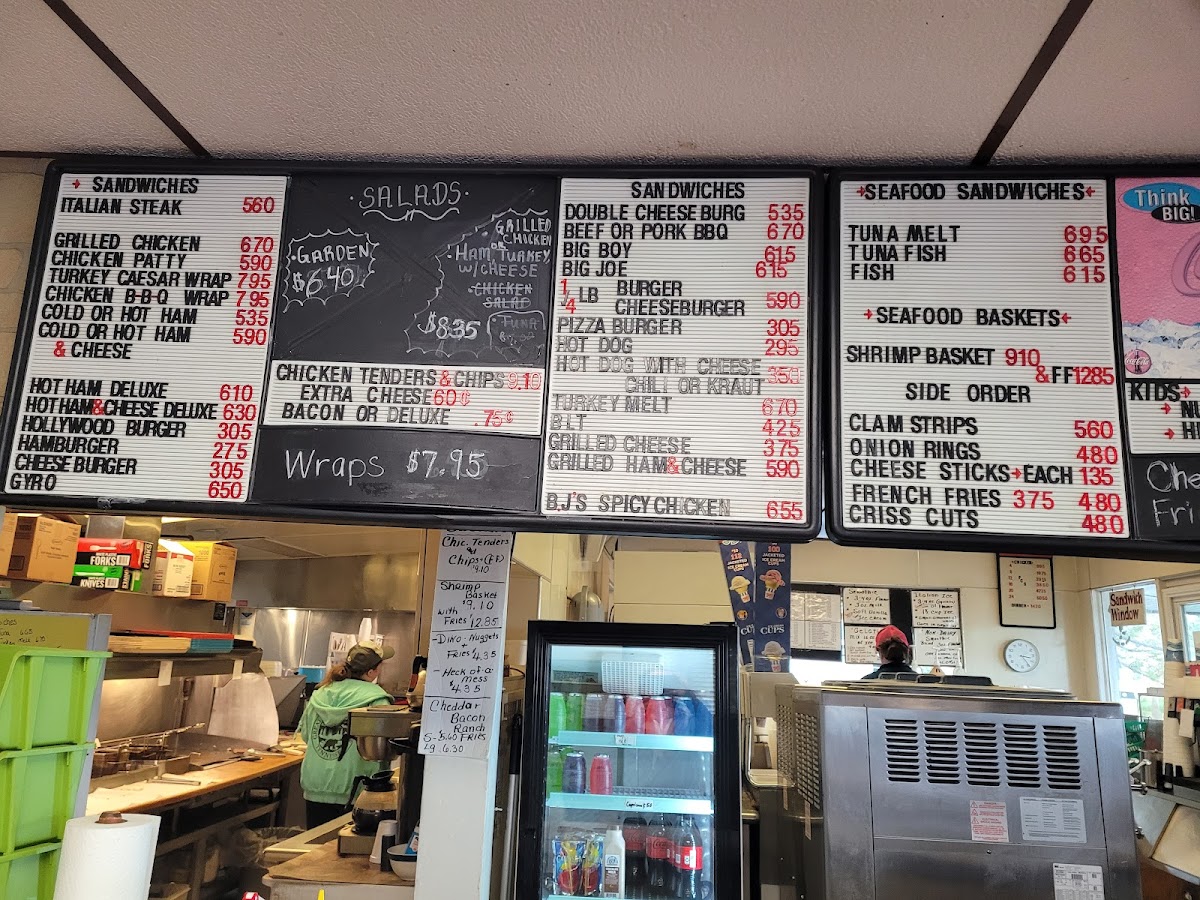 SANDWICHES
ITALIAN STEAK 560
GRILLED CHICKEN 670
CHICKEN PATTY 590
TURKEY CAESAR WRAP 795
CHICKEN B-B-Q WRAP 795
COLD OR HOT HAM 535
COLD OR HOT HAM 590
& CHEESE
HOT HAM DELUXE 610
HOT HAM&CHEESE DELUXE 630
HOLLYWOOD BURGER 305
HAMBURGER 275
CHEESE BURGER 305
GYRO 650
SALADS
GARDEN
$6.40
GRILLED
CHICKEN
OR
HAM TURKEY
W/CHEESE
CHICKEN
SALAD
$8.35
TUNA
CHICKEN TENDERS&CHIPS 9.10
EXTRA CHEESE 60¢
BACON OR DELUXE .75¢
Wraps $7.95
SANDWICHES
DOUBLE CHEESE BURG 535
BEEF OR PORK BBQ 670
BIG BOY 615
BIG JOE 615
1/4 LB BURGER
CHEESEBURGER 590
PIZZA BURGER 305
HOT DOG 295
HOT DOG WITH CHEESE 350
CHILI OR KRAUT
TURKEY MELT 670
BLT 425
GRILLED CHEESE 375
GRILLED HAM&CHEESE 590
B.J'S SPICY CHICKEN 655
SEAFOOD SANDWICHES
TUNA MELT 695
TUNA FISH 665
FISH 615
SEAFOOD BASKETS
SHRIMP BASKET 910
&FF 1285
SIDE ORDER
CLAM STRIPS 560
ONION RINGS 480
CHEESE STICKS EACH 135
FRENCH FRIES 375 480
CRISS CUTS 480
Think
BIG!
KIDS
NI
H
Che
Fri
Chic. Tenders
Chips
9.10
Shrimp
Basket
$9.10
with
Fries 12.85
-Dino-Nuggets
+
Fries $4.35
-Heck-of-a-
mess
$4.35
Cheddar
Bacon
Ranch
FRIES
S-5.60
Lg-6.30
FORKS
KNIVES
ICE CREAM
CUPS
CUPS
Smoothie
Gelati
Italian Ice
Sandwich
Window